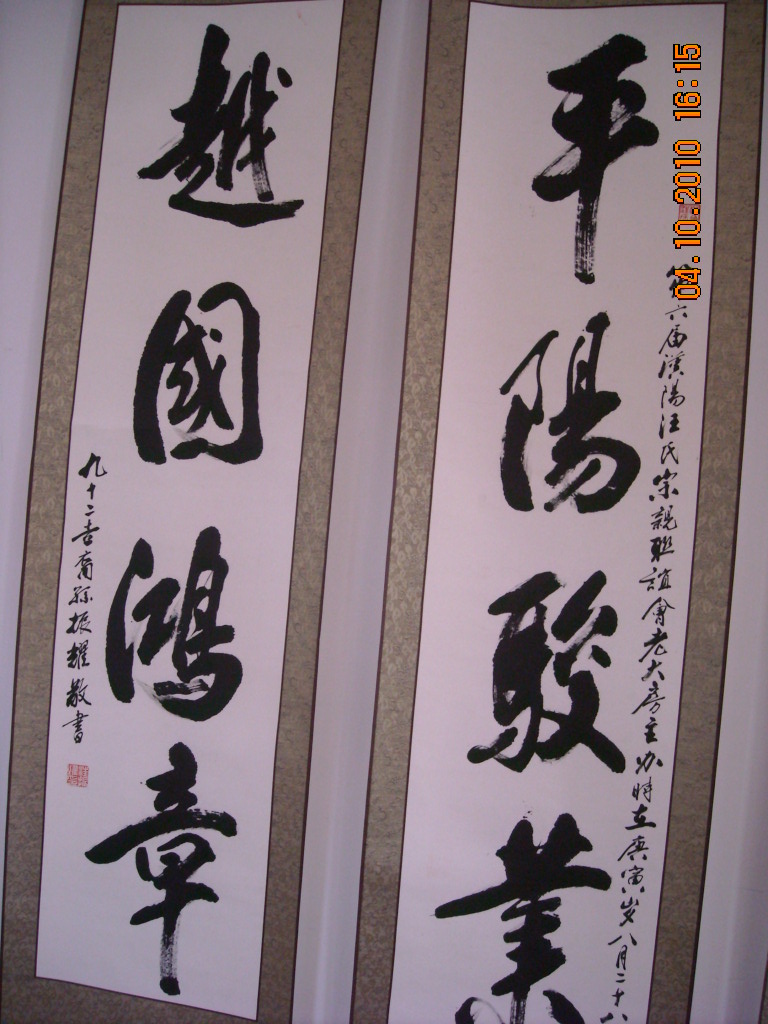 平陽駿業
第六届漢陽汪氏宗親聯誼會老大房主办時在庚寅岁八月二十八
越國鴻章
九十二叟裔孫振耀敬書
04.10.2010 16:15